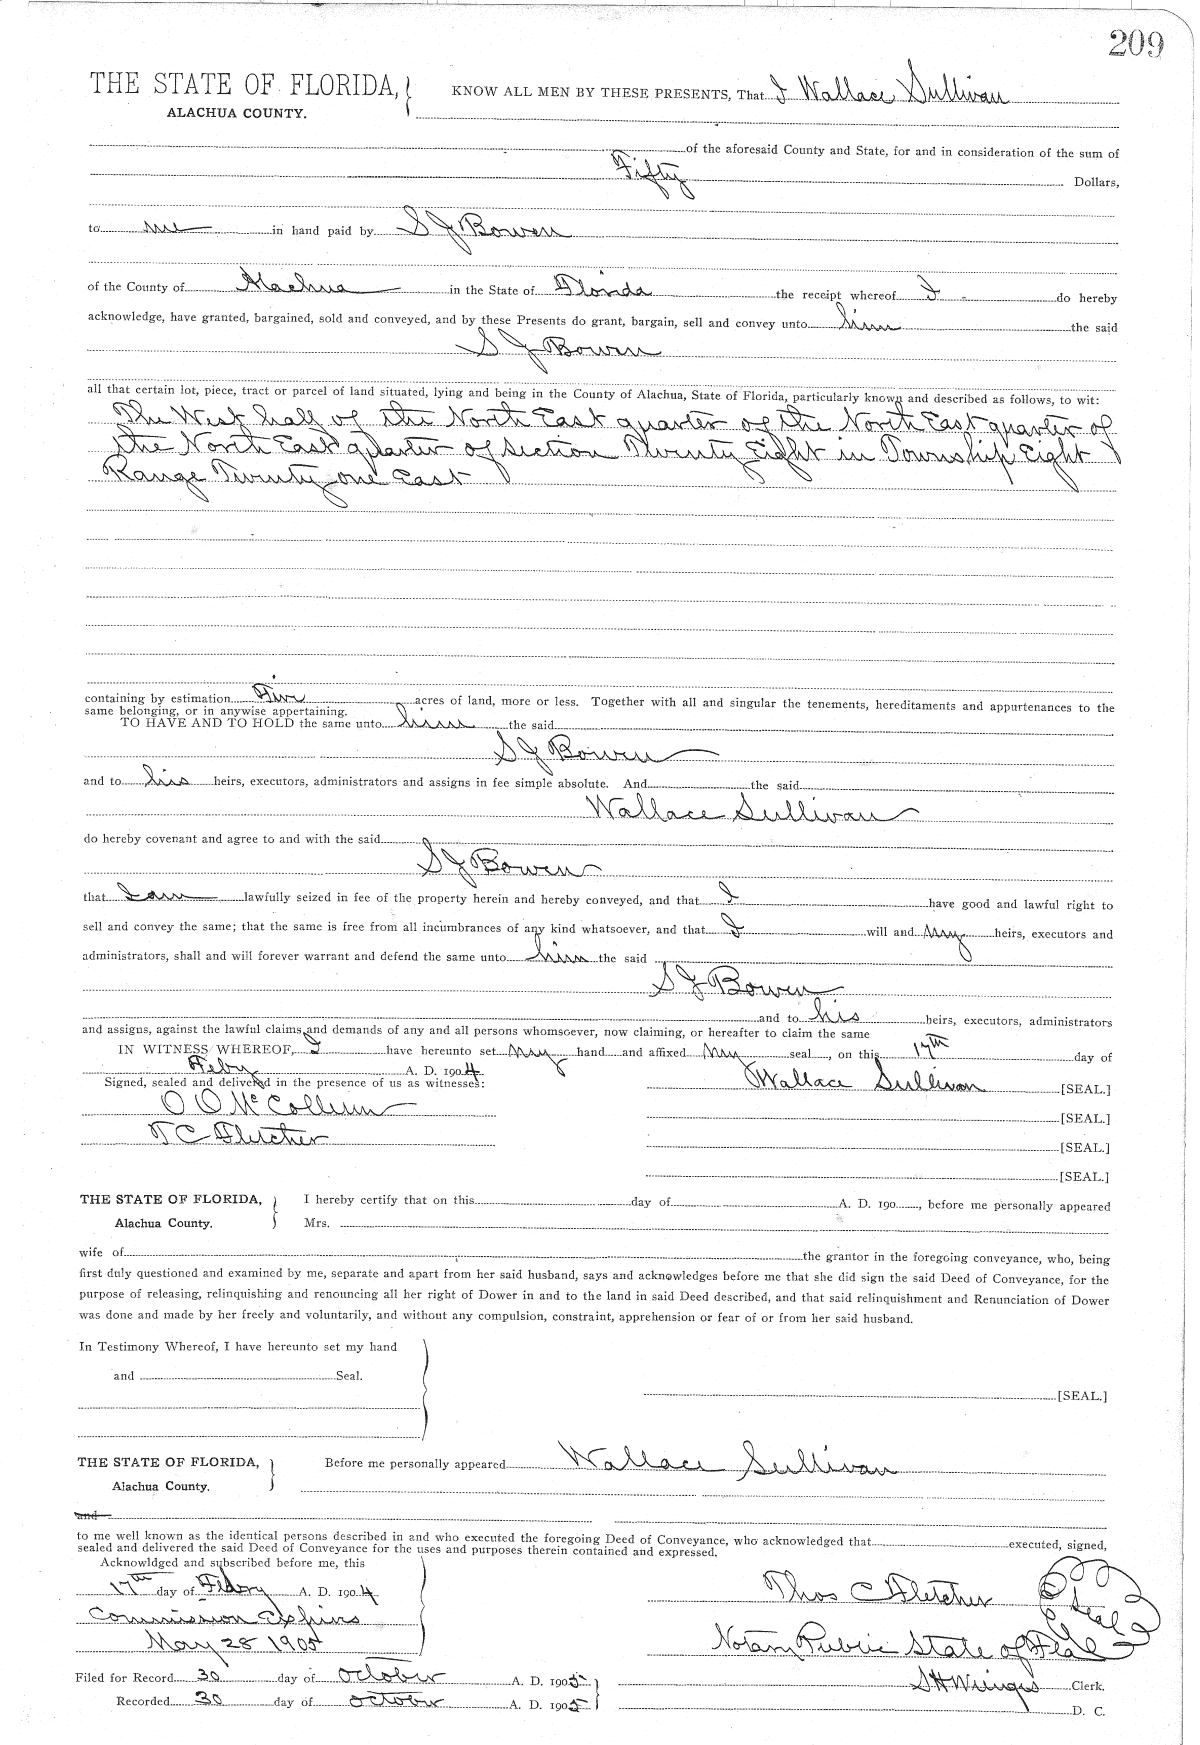 209
THE STATE OF FLORIDA, KNOW ALL MEN BY THESE PRESENTS, That I Wallace Sullivan
ALACHUA COUNTY.
of the aforesaid County and State, for and in consideration of the sum of
Fifty Dollars,
to me in hand paid by S J Bowen
of the County of Alachua in the State of Florida the receipt whereof I do hereby
acknowledge, have granted, bargained, sold and conveyed, and by these Presents do grant, bargain, sell and convey unto him the said
S J Bowen
all that certain lot, piece, tract or parcel of land situated, lying and being in the County of Alachua, State of Florida, particularly known and described as follows, to wit:
The West half of the North East quarter of the North East quarter of
the North East quarter of Section Twenty Eight in Township Eight
Range Twenty one East
containing by estimation Five acres of land, more or less. Together with all and singular the tenements, hereditaments and appurtenances to the
same belonging, or in anywise appertaining.
TO HAVE AND TO HOLD the same unto him the said
S J Bowen
and to his heirs, executors, administrators and assigns in fee simple absolute. And the said
Wallace Sullivan
do hereby covenant and agree to and with the said
S J Bowen
that I am lawfully seized in fee of the property herein and hereby conveyed, and that I have good and lawful right to
sell and convey the same; that the same is free from all incumbrances of any kind whatsoever, and that I will and my heirs, executors and
administrators, shall and will forever warrant and defend the same unto him the said
S J Bowen
and to his heirs, executors, administrators
and assigns, against the lawful claims and demands of any and all persons whomsoever, now claiming, or hereafter to claim the same
IN WITNESS WHEREOF, I have hereunto set my hand and affixed my seal, on this 17th day of
Feby A. D. 1904.
Signed, sealed and delivered in the presence of us as witnesses: Wallace Sullivan [SEAL.]
O O McCollum [SEAL.]
T C Fletcher [SEAL.]
[SEAL.]
THE STATE OF FLORIDA, I hereby certify that on this day of A. D. 190, before me personally appeared
Alachua County. Mrs.
wife of the grantor in the foregoing conveyance, who, being
first duly questioned and examined by me, separate and apart from her said husband, says and acknowledges before me that she did sign the said Deed of Conveyance, for the
purpose of releasing, relinquishing and renouncing all her right of Dower in and to the land in said Deed described, and that said relinquishment and Renunciation of Dower
was done and made by her freely and voluntarily, and without any compulsion, constraint, apprehension or fear of or from her said husband.
In Testimony Whereof, I have hereunto set my hand
and Seal.
[SEAL.]
THE STATE OF FLORIDA, Before me personally appeared Wallace Sullivan
Alachua County.
and
to me well known as the identical persons described in and who executed the foregoing Deed of Conveyance, who acknowledged that executed, signed,
sealed and delivered the said Deed of Conveyance for the uses and purposes therein contained and expressed.
Acknowldged and subscribed before me, this
17th day of Febry A. D. 1904 Thos C Fletcher Seal
Commission Expires
May 28 1905 Notary Public State of Fla
Filed for Record 30 day of October A. D. 1905 S H Wienges Clerk.
Recorded 30 day of October A. D. 1905 D. C.